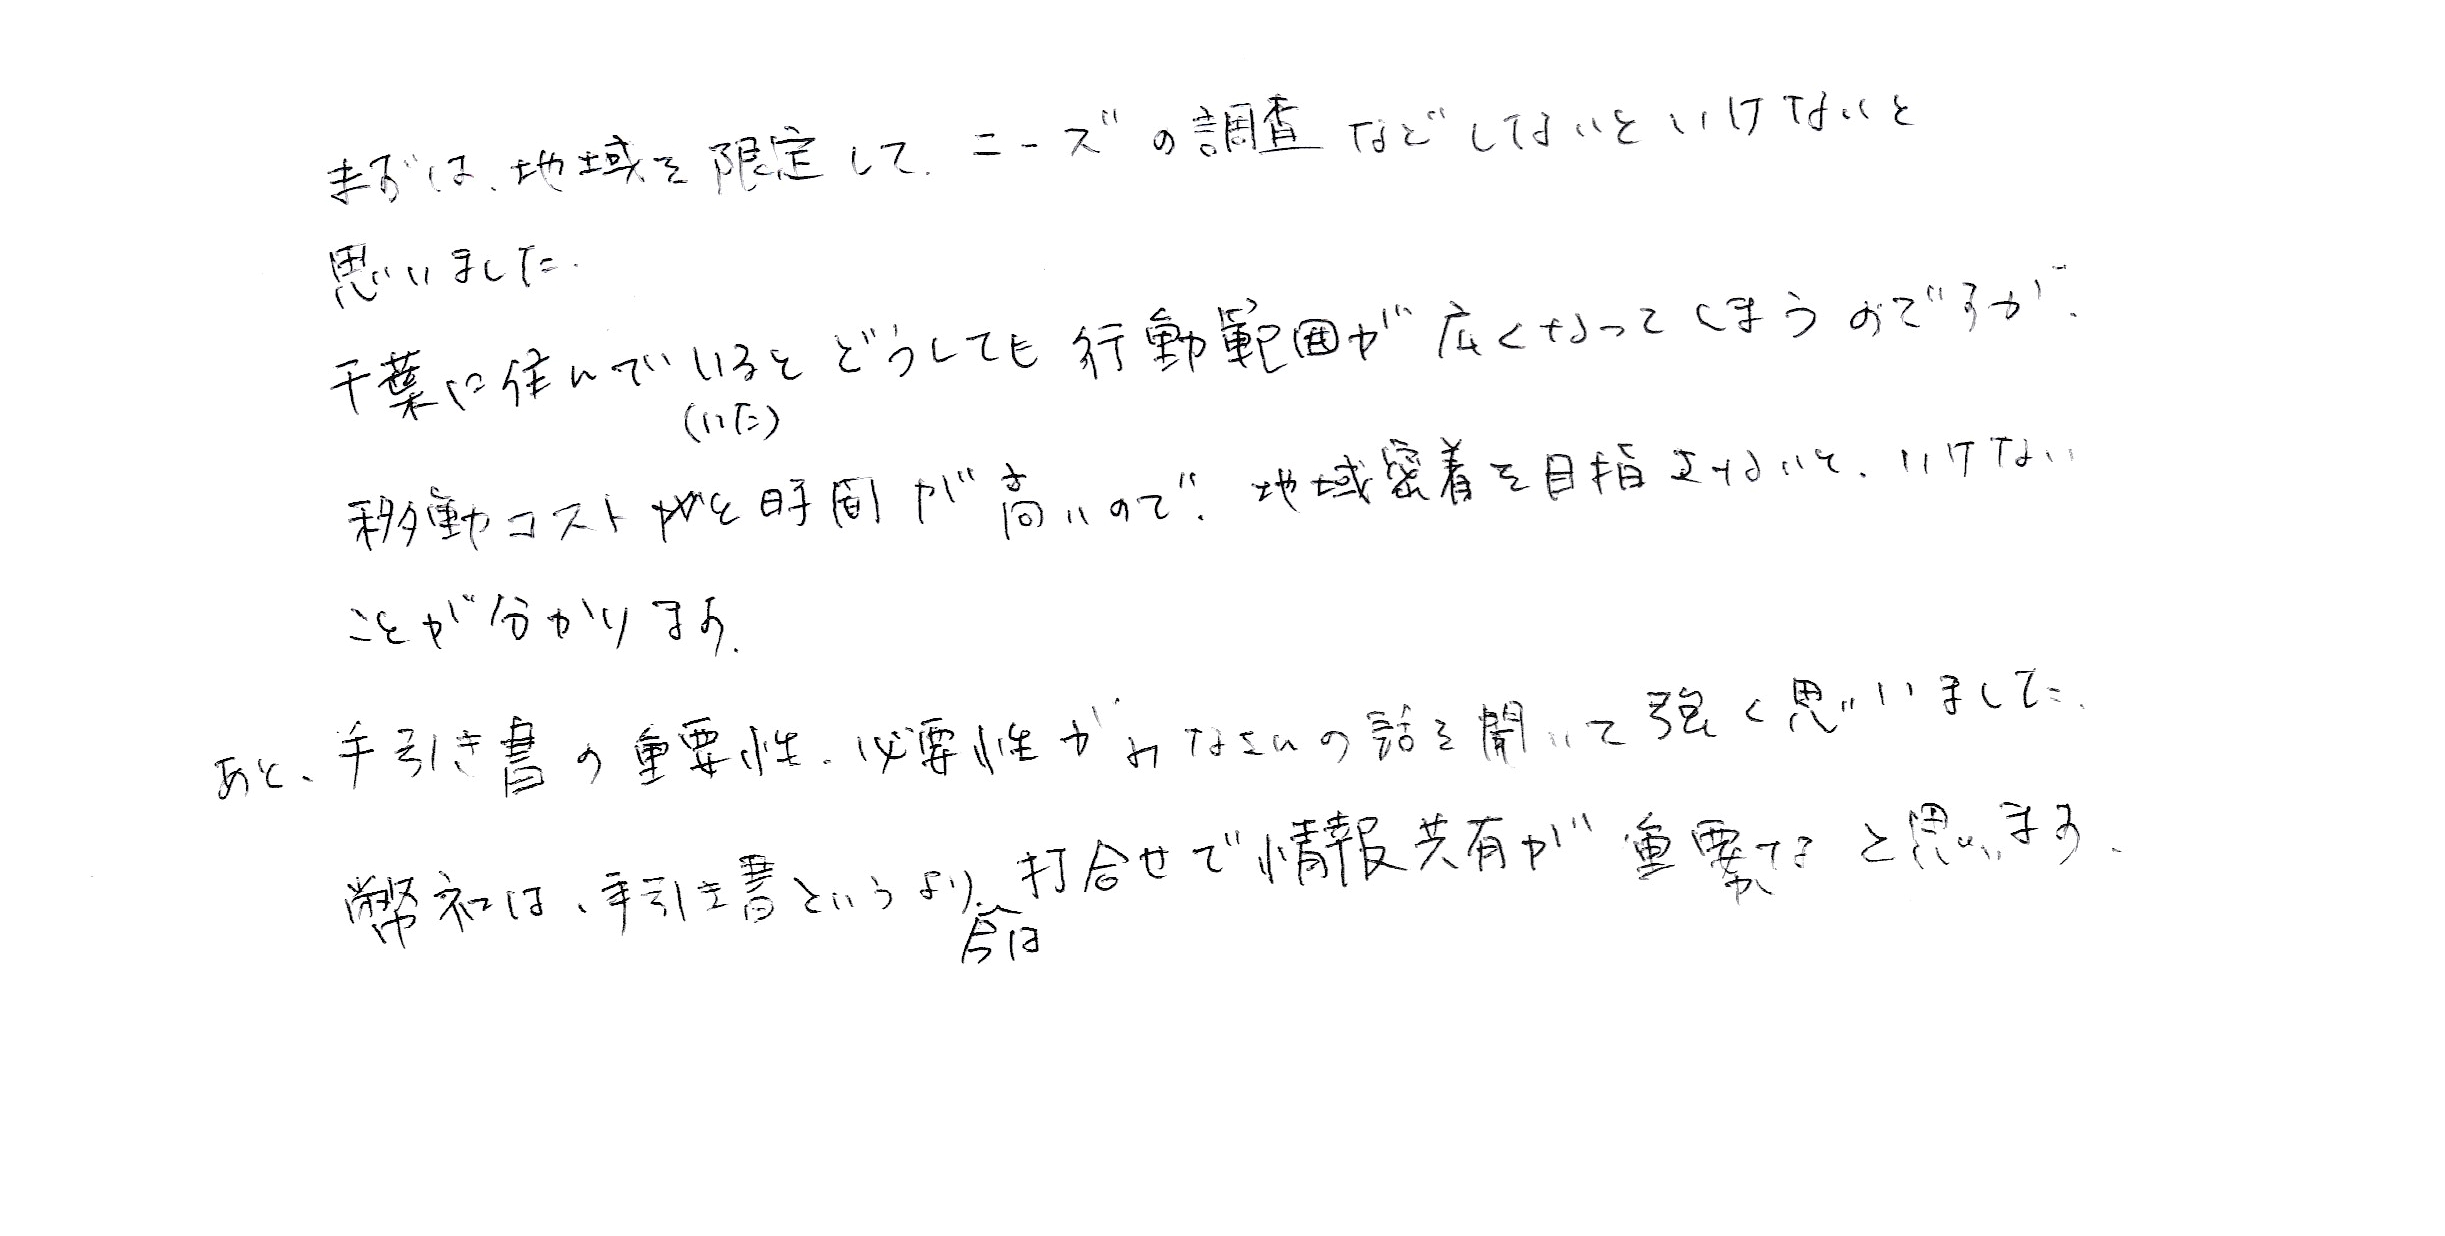 まずは、地域を限定して、ニーズの調査などしないといけないと
思いました。
千葉に住んでいるとどうしても行動範囲が広くなってしまうのですが、
(いた)
移動コストと時間が高いので、地域密着を目指さないと、いけない
ことが分かります。
あと、手引き書の重要性、必要性がみなさんの話を聞いて強く思いました。
弊社は、手引き書というより、打合せで情報共有が重要かなと思います。
今は